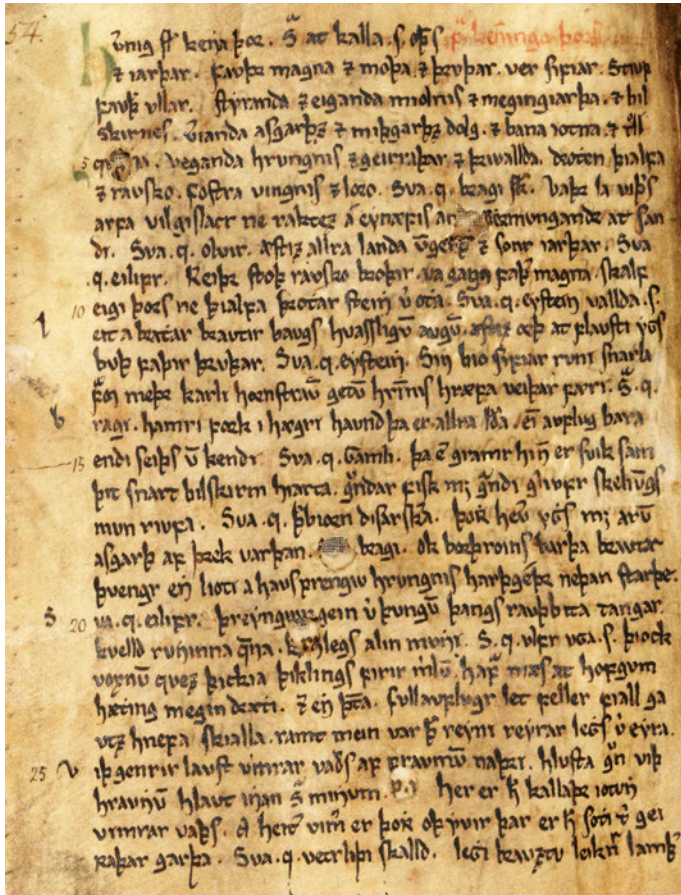 54.
hvͦnig ſk̄ keɴa þor. Sͣ at kalla .ſ. oþ̄ſ þ̄ kenninga þorſ
⁊ iarþar. favþr magna ⁊ moþa ⁊ þrvþar. ver ſifiar. Stivp
favþ̄ vllar. ſtyranda ⁊ eiganda miolniſ ⁊ megingiarþa. ⁊ bil
ſkirnes. v̄ianda aſgarþz ⁊ miþgarþz dolg. ⁊ bana iotna. ⁊ t̾ll
5 q nna. veganda hrungniſ ⁊ geirraþar ⁊ þrivallda. drotten þialfa
⁊ ravſko. foſtra vingniſ ⁊ loro. Sva .q. bragi ſk̄. Vaþr la viþ̄s
arfa vilgi ſlacr ne raktez á eynæfis ormungande at ſan
di. Sva .q. olvir. æſtiz allra landa v̄gerþ̄ ⁊ ſonr iarþar. Sva
.q. eilifr. Reiþr ſtoþ ravſko broþir. va gagn faþ̄ magna. ſkalf
10 eigi þorſ ne þialfa þrotar ſteinn v̾ ota. Sva .q. eyſteinn vallda .ſ.
l eit a brattar brautir baugs hvaſſligū augū. æſtiz orþ at flavſti ygs
buþ̄ faþir þrvþar. Sva .q. eyſteinn. Sin bio ſifiar runi ſnarla
f̄m meþr karli hornſtravm getū hrīniſ hræra veiþar færi. Sͣ .q.
b ragi. hamri fork i hægri haund þa er allra lāda. eɴ auflug bara
15 endi ſeiþs v̄ kendi Sva .q. Gamli. þa ē gramr hiɴ er ſvik ſam
þit ſnart bilſkirni hiarta. grundar fiſk mꝫ grandi gliufr ſkeliūgs
mun riufa. Sva .q. þ̄biorn diſarſkalld. þoʀ hef̄ ygs mꝫ arū
aſgarþ af þrek varþan. bragi. ok borþroins barþa brautar
þvengr eɴ lioti a hauſſprengiu hrungnis harþgeþr neþan ſtarþe.
S 20 va .q. eilifr. þreyngvir gein v̾ þungū þangs rauþbita tangar
kvelld runinna qͥnna. legs alin muɴi. S. q. ulfr uga .ſ. þiock
voxnū quez þickia þiklings firir mͥlū hafͬa mæs at hofgum
hæting megin drætti. ⁊ eɴ þ̄ta. fullauflugr let fellir fiall ga
vtz hnefa ſkialla. ramt mein var þ̄ reyni reyrar legs v̾ eyra.
25 v iþgenrir lauſt vimrar vaþs af fravnum naþri. hluſta grunn viþ
hravnū hlaut innan ſͣ minnum. her er h̄ kallaþr iotunn
vimrar vaþs. A heitir vimr er þoʀ oþ yvir þar er h̄ ſotti t̾ gei
raþar garþa. Sva .q. vetrliþi ſkalld. leɢi brauztu leikn̄ lamþ̄